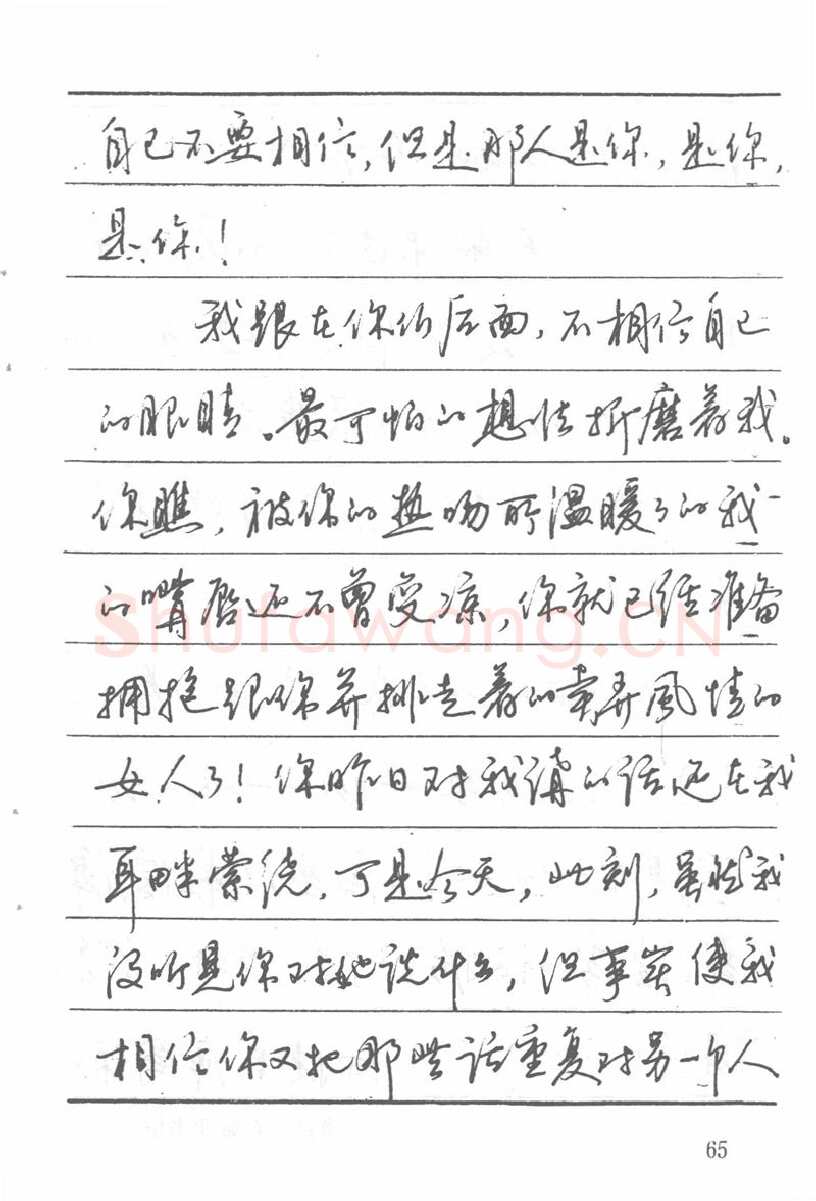 自己不要相信，但是那人是你，是你，
是你！
我跟在你们后面，不相信自己
的眼睛。最可怕的想法折磨着我。
你瞧，被你的热吻所温暖了的我
的嘴唇还不曾受凉，你就已经准备
拥抱跟你并排走着的卖弄風情的
女人了！你昨日对我讲的话还在我
耳畔萦绕，可是今天，此刻，虽然我
没听见你对她说什么，但事实使我
相信你又把那些话重复对另一个人
Shufawang.CN
65